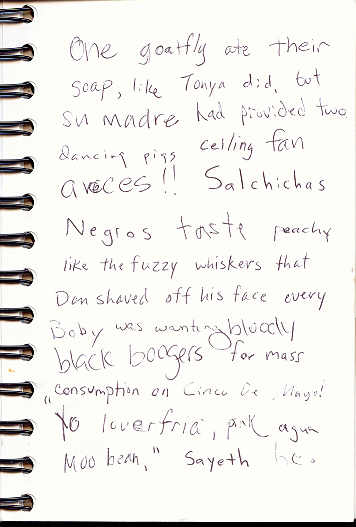 One goatfly ate their
soap, like Tonya did, but
su madre had provided two
dancing pigs ceiling fan
aveces!! Salchichas
Negros taste peachy
like the fuzzy whiskers that
Dan shaved off his face every
Boby was wanting bloody
black boogers for mass
"consumption on Cinco De Mayo!
Yo loverfria, pink agua
Moo bean," Sayeth he.